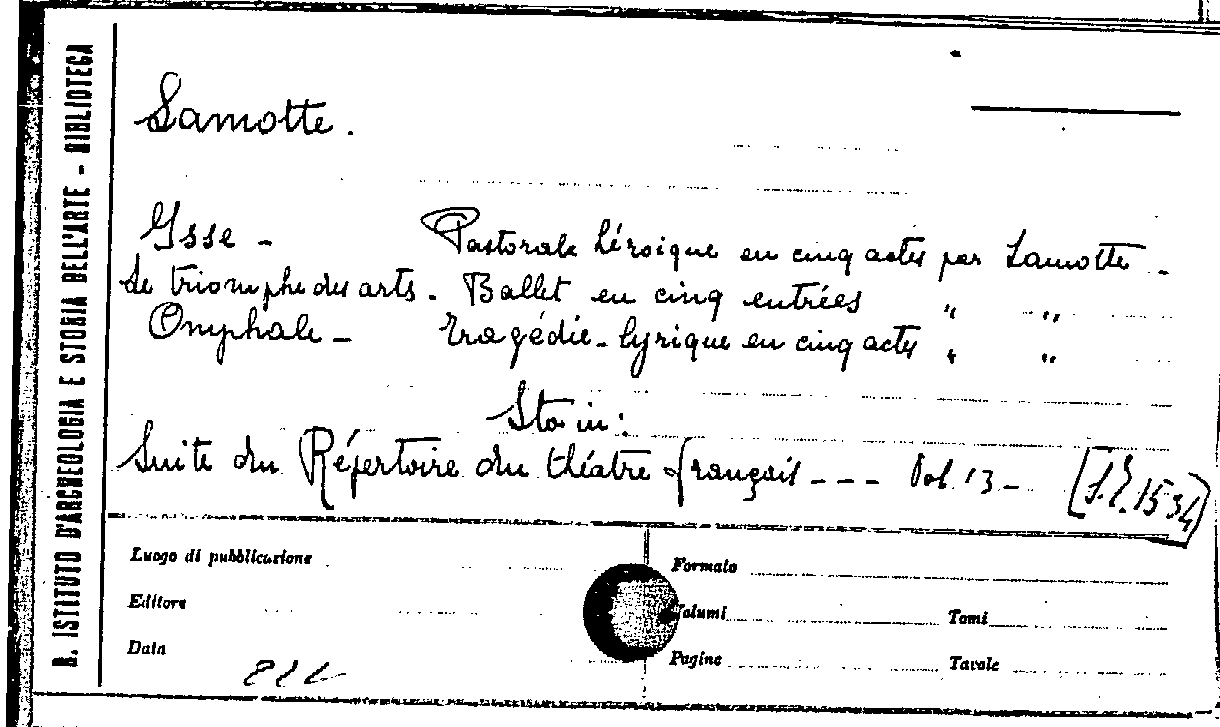 R. ISTITUTO D'ARCHEOLOGIA E STORIA DELL'ARTE - BIBLIOTECA
Lamotte.
Isse - Pastorale héroique en cinq actes par Lamotte -
Le triomphe des arts. Ballet en cinq entrées " "
Omphale - tragédie-lyrique en cinq actes " "
Sta in:
Suite du Répertoire du théatre français --- Vol. 13 -
Luogo di pubblicazione
Formato
Editore
Volumi
Tomi
Data
Pagine
Tavole